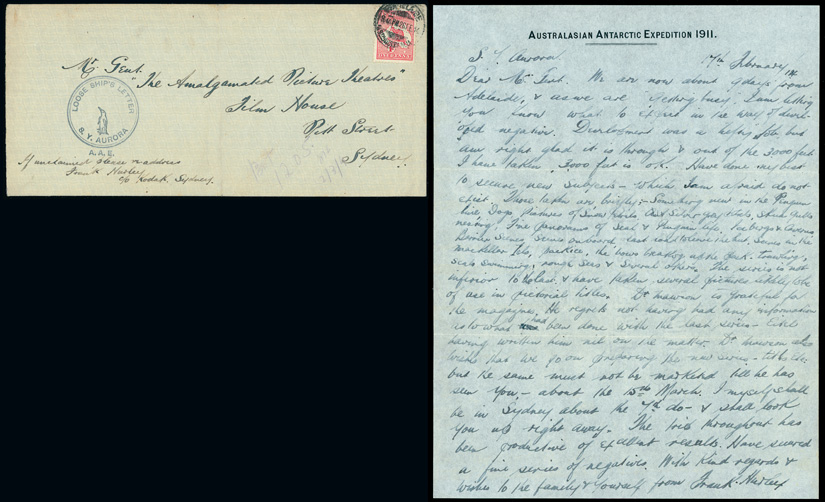 Mr Gent.
"The Amalgamated Picture Theatres"
Film House
Pitt Street
Sydney
LOOSE SHIP'S LETTER
S. Y. AURORA
A. A. E.
If unclaimed please re address
Frank Hurley
c/o Kodak, Sydney.
AUSTRALASIAN ANTARCTIC EXPEDITION 1911.
S. Y. Aurora
17th February
Dear Mr Gent. We are now about 9 days from
Adelaide, & as we are getting busy, I am letting
you know what to expect in the way of devel-
oped negative. Development was a hefty job but
am right glad it is through & out of the 3000 feet
I have taken, 3000 feet is O.K. Have done my best
to secure new subjects – which I am afraid do not
exist. Those taken are briefly: – Something new in the Penguin
line, Dogs, Pictures of Snow Petrels, Ant Silver grey Petrels, Skua Gulls
nesting, Fine panoramas of Seal & Penguin life, Icebergs &
Scenes, Scenes on board, last visit to the hut, Scenes in the
Mackellar Ils, pack ice, the bows breaking up the pack, trawling,
Seals Swimming, rough Seas & Several others. The series is not
inferior to the last, & have taken several pictures likely to be
of use in pictorial titles. Dr Mawson is grateful for
the magazine. He regrets not having had any information
as to what had been done with the last series –
having written him not on the matter. Dr Mawson also
wishes that we go on preparing the new series – titles etc.
but the same must not be marketed till he has
seen you, – about the 15th March. I myself shall
be in Sydney about the 7th do – & shall look
you up right away. The trip throughout has
been productive of excellent results. Have secured
a fine series of negatives. With kind regards &
wishes to the family & yourself from Frank Hurley